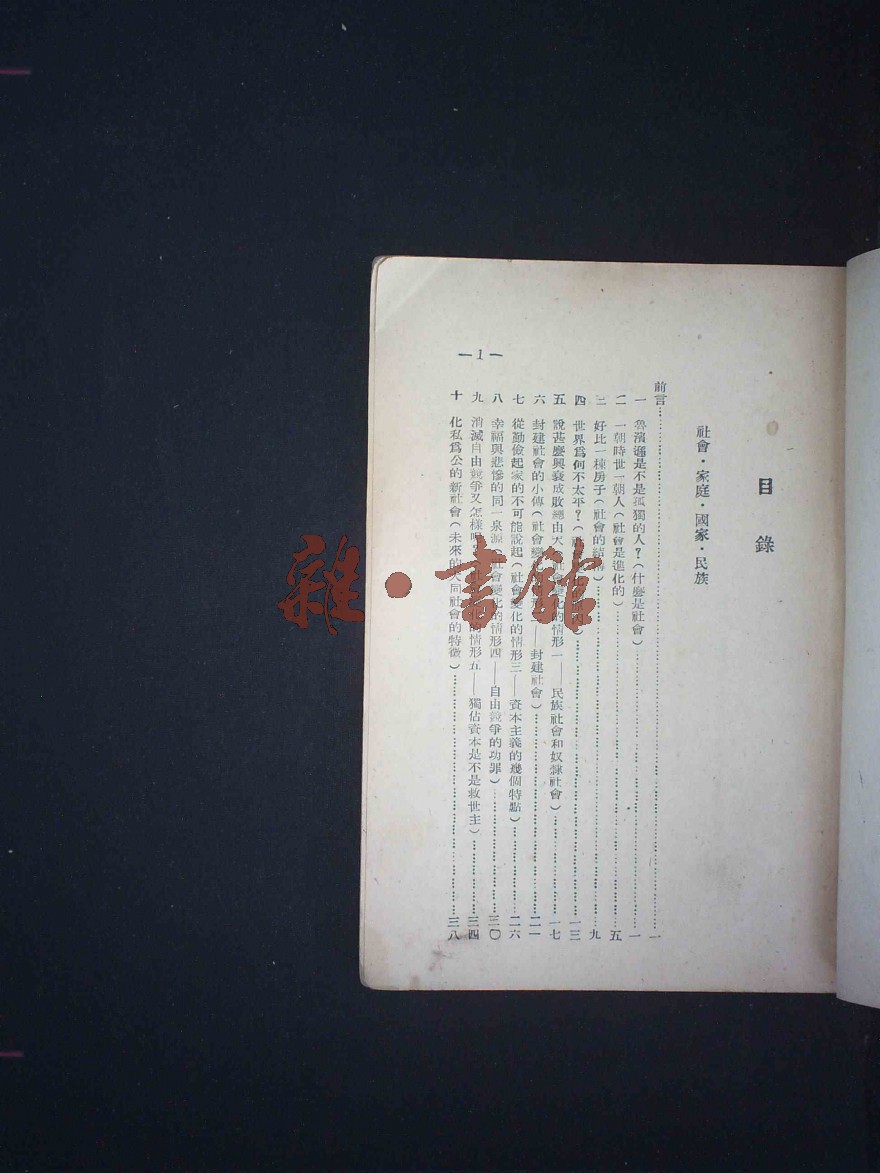 目錄
社會·家庭·國家·民族
前言……一
一 魯濱遜是不是孤獨的人？（什麼是社會）……一
二 一朝時世一朝人（社會是進化的）……五
三 好比一棟房子（社會的結構）……九
四 世界爲何不太平？……一三
五 說甚麼興衰成敗總由天 社會變化的情形一——民族社會和奴隸社會）……一七
六 封建社會的小傳（社會變化——封建社會）……二一
七 從勤儉起家的不可能說起（社會變化的情形三——資本主義的幾個特點）……二六
八 幸福與悲慘的同一泉源 社會變化的情形四——自由競爭的功罪）……三〇
九 消滅自由競爭又怎樣 的情形五——獨佔資本是不是救世主）……三四
十 化私爲公的新社會（未來的大同社會的特徵）……三八
—1—
雜·書館